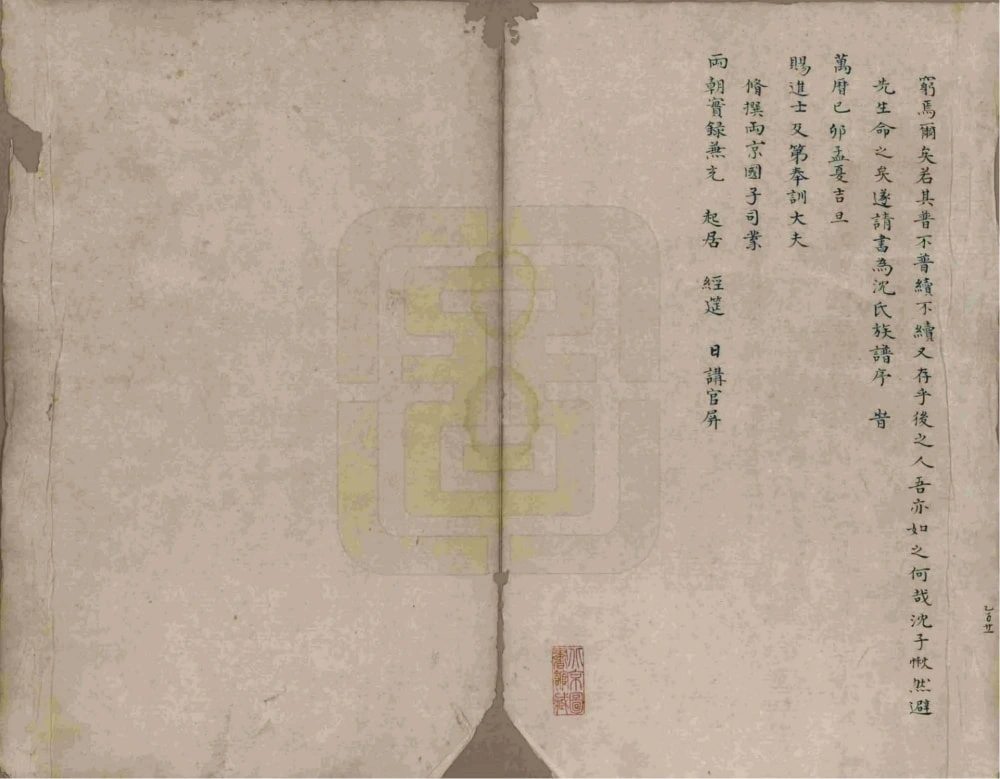 窮焉爾矣若其普不普續不續又存乎後之人吾亦如之何哉沈子愀然避
先生命之矣遂請書為沈氏族譜序 旹
萬曆已夘孟夏吉旦
賜進士及第奉訓大夫
脩撰両京國子司業
両朝實録兼充 起居 經筵 日講官屏
北京圖
書館藏